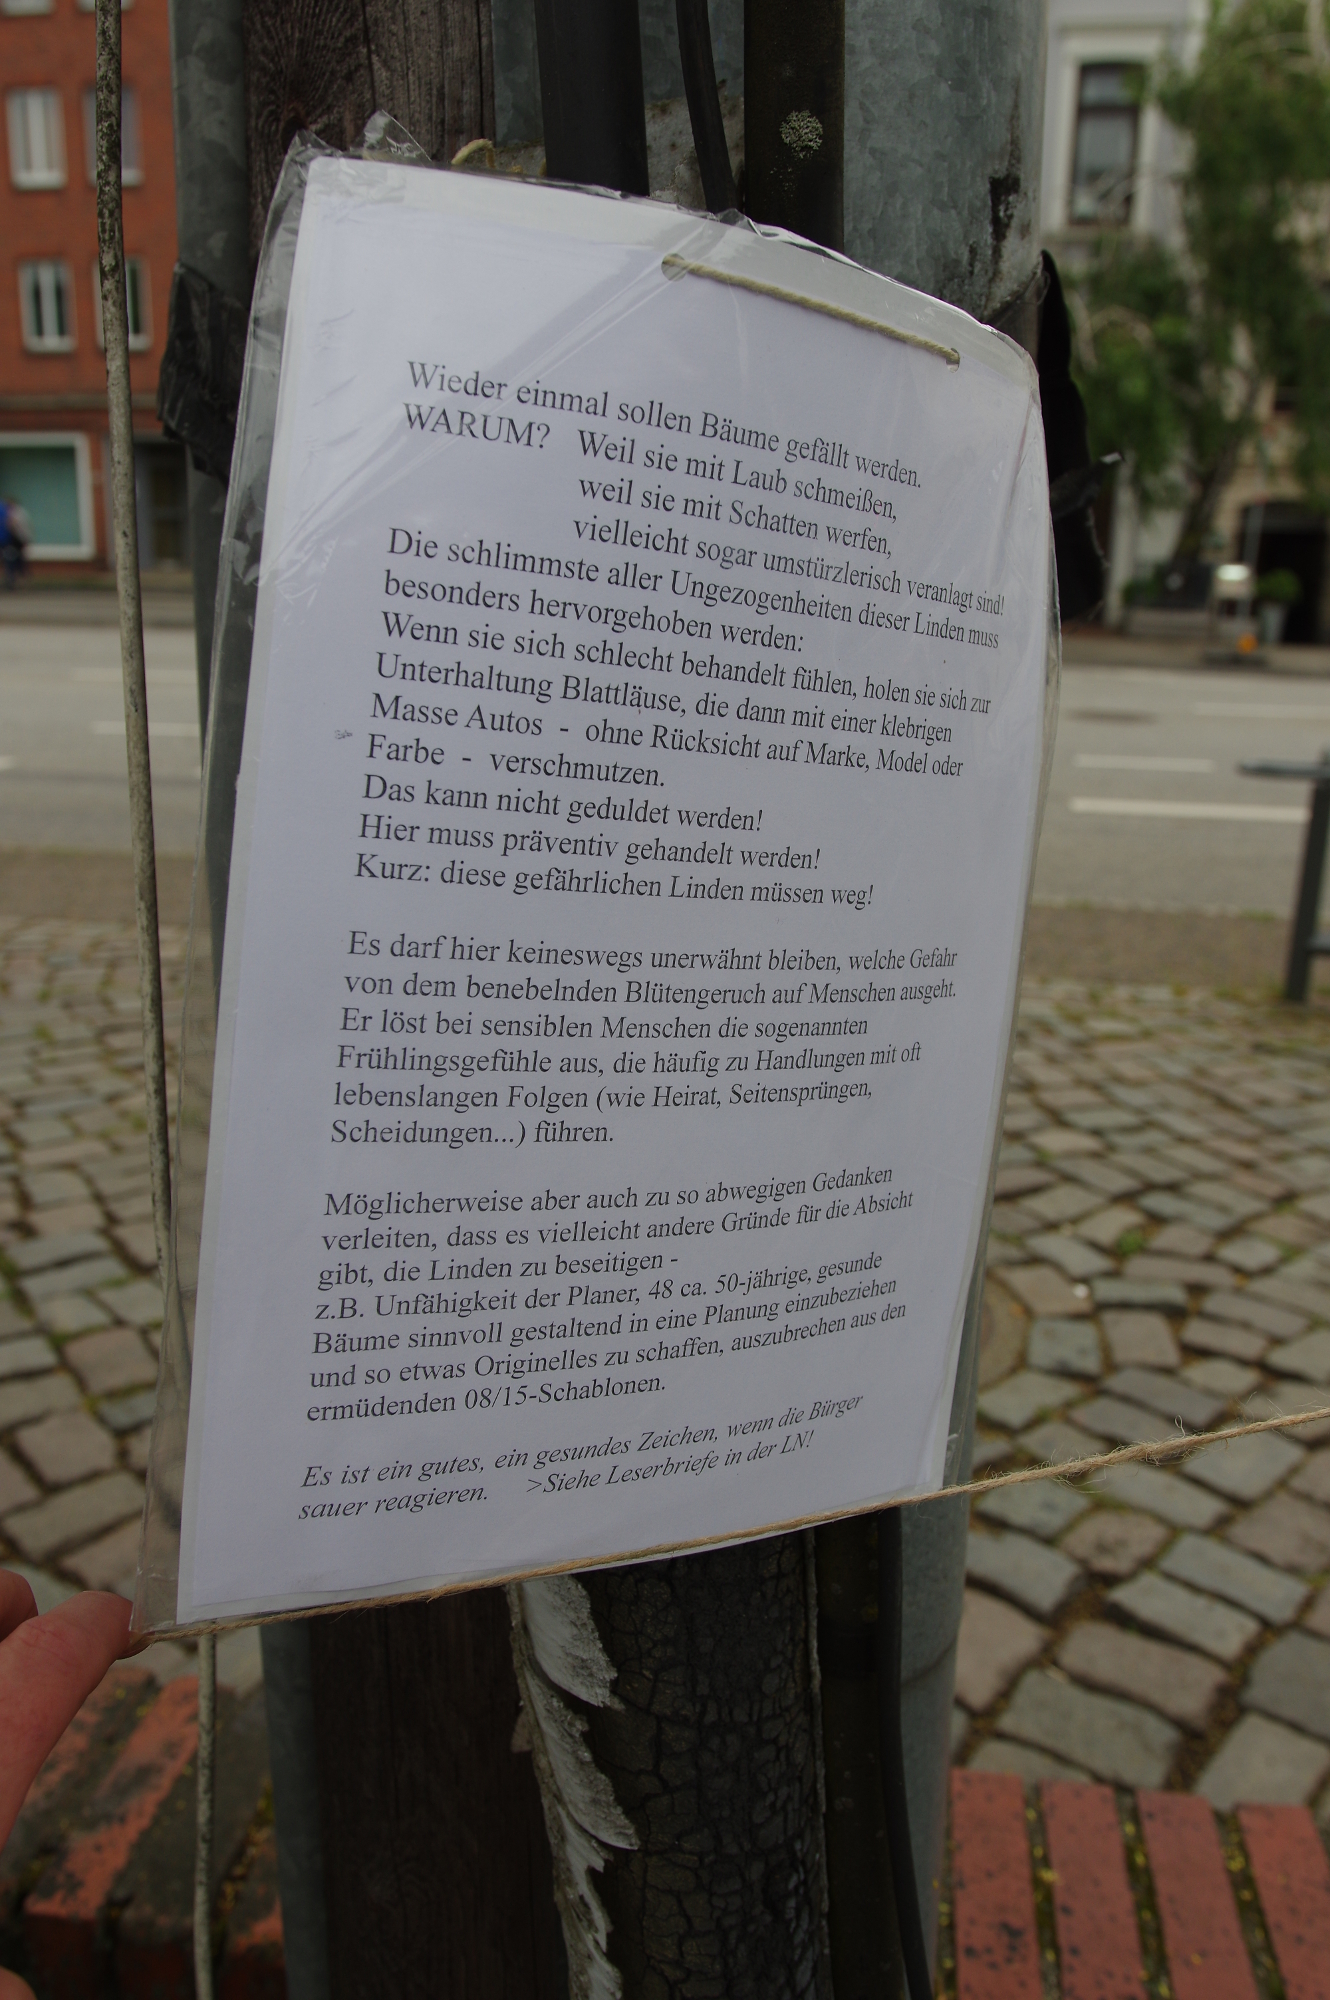 Wieder einmal sollen Bäume gefällt werden.
WARUM? Weil sie mit Laub schmeißen,
weil sie mit Schatten werfen,
vielleicht sogar umstürzlerisch veranlagt sind!
Die schlimmste aller Ungezogenheiten dieser Linden muss
besonders hervorgehoben werden:
Wenn sie sich schlecht behandelt fühlen, holen sie sich zur
Unterhaltung Blattläuse, die dann mit einer klebrigen
Masse Autos - ohne Rücksicht auf Marke, Model oder
Farbe - verschmutzen.
Das kann nicht geduldet werden!
Hier muss präventiv gehandelt werden!
Kurz: diese gefährlichen Linden müssen weg!
Es darf hier keineswegs unerwähnt bleiben, welche Gefahr
von dem benebelnden Blütengeruch auf Menschen ausgeht.
Er löst bei sensiblen Menschen die sogenannten
Frühlingsgefühle aus, die häufig zu Handlungen mit oft
lebenslangen Folgen (wie Heirat, Seitensprüngen,
Scheidungen...) führen.
Möglicherweise aber auch zu so abwegigen Gedanken
verleiten, dass es vielleicht andere Gründe für die Absicht
gibt, die Linden zu beseitigen -
z.B. Unfähigkeit der Planer, 48 ca. 50-jährige, gesunde
Bäume sinnvoll gestaltend in eine Planung einzubeziehen
und so etwas Originelles zu schaffen, auszubrechen aus den
ermüdenden 08/15-Schablonen.
Es ist ein gutes, ein gesundes Zeichen, wenn die Bürger
sauer reagieren. >Siehe Leserbriefe in der LN!